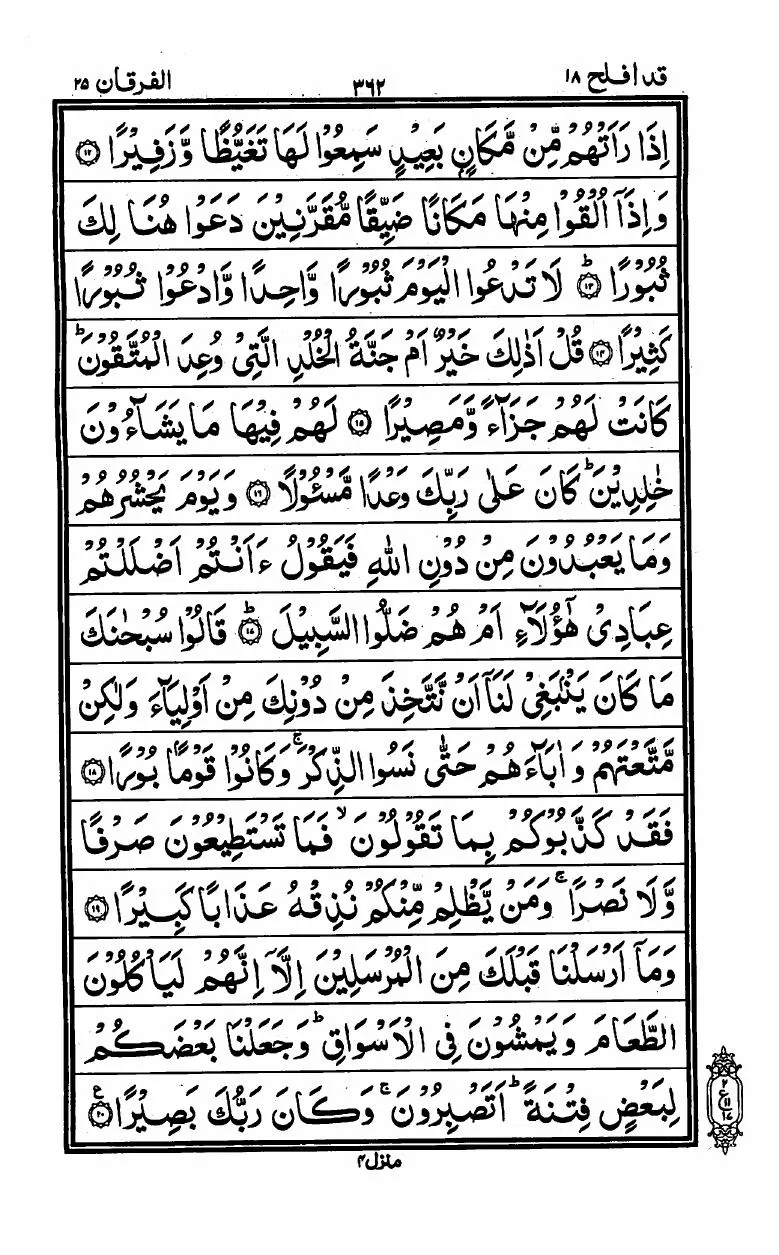 قد افلح ۱۸
۳۶۲
الفرقان ۲۵
اِذَا رَاَتْهُمْ مِّنْ مَّكَانٍۭ بَعِيْدٍ سَمِعُوْا لَهَا تَغَيُّظًا وَّزَفِيْرًا ۝۱۲
وَاِذَاۤ اُلْقُوْا مِنْهَا مَكَانًا ضَيِّقًا مُّقَرَّنِيْنَ دَعَوْا هُنَا لِكَ
ثُبُوْرًا ؕ ۝۱۳ لَا تَدْعُوا الْيَوْمَ ثُبُوْرًا وَّاحِدًا وَّادْعُوْا ثُبُوْرًا
كَثِيْرًا ۝۱۴ قُلْ اَذٰلِكَ خَيْرٌ اَمْ جَنَّةُ الْخُلْدِ الَّتِيْ وُعِدَ الْمُتَّقُوْنَ ؕ
كَانَتْ لَهُمْ جَزَآءً وَّمَصِيْرًا ۝۱۵ لَهُمْ فِيْهَا مَا يَشَآءُوْنَ
خٰلِدِيْنَ ؕ كَانَ عَلٰى رَبِّكَ وَعْدًا مَّسْـُٔوْلًا ۝۱۶ وَيَوْمَ يَحْشُرُهُمْ
وَمَا يَعْبُدُوْنَ مِنْ دُوْنِ اللّٰهِ فَيَقُوْلُ ءَاَنْتُمْ اَضْلَلْتُمْ
عِبَادِيْ هٰۤؤُلَآءِ اَمْ هُمْ ضَلُّوا السَّبِيْلَ ؕ ۝۱۷ قَالُوْا سُبْحٰنَكَ
مَا كَانَ يَنْۢبَغِيْ لَنَاۤ اَنْ نَّتَّخِذَ مِنْ دُوْنِكَ مِنْ اَوْلِيَآءَ وَلٰكِنْ
مَّتَّعْتَهُمْ وَ اٰبَآءَهُمْ حَتّٰى نَسُوا الذِّكْرَ ۚ وَكَانُوْا قَوْمًۢا بُوْرًا ۝۱۸
فَقَدْ كَذَّبُوْكُمْ بِمَا تَقُوْلُوْنَ ۙ فَمَا تَسْتَطِيْعُوْنَ صَرْفًا
وَّلَا نَصْرًا ۚ وَمَنْ يَّظْلِمْ مِّنْكُمْ نُذِقْهُ عَذَابًا كَبِيْرًا ۝۱۹
وَمَاۤ اَرْسَلْنَا قَبْلَكَ مِنَ الْمُرْسَلِيْنَ اِلَّاۤ اِنَّهُمْ لَيَاْكُلُوْنَ
الطَّعَامَ وَيَمْشُوْنَ فِى الْاَسْوَاقِ ؕ وَجَعَلْنَا بَعْضَكُمْ
لِبَعْضٍ فِتْنَةً ؕ اَتَصْبِرُوْنَ ۚ وَكَانَ رَبُّكَ بَصِيْرًا ۝۲۰ ع
۲
ع
۱۱
۱۷
منزل ۴